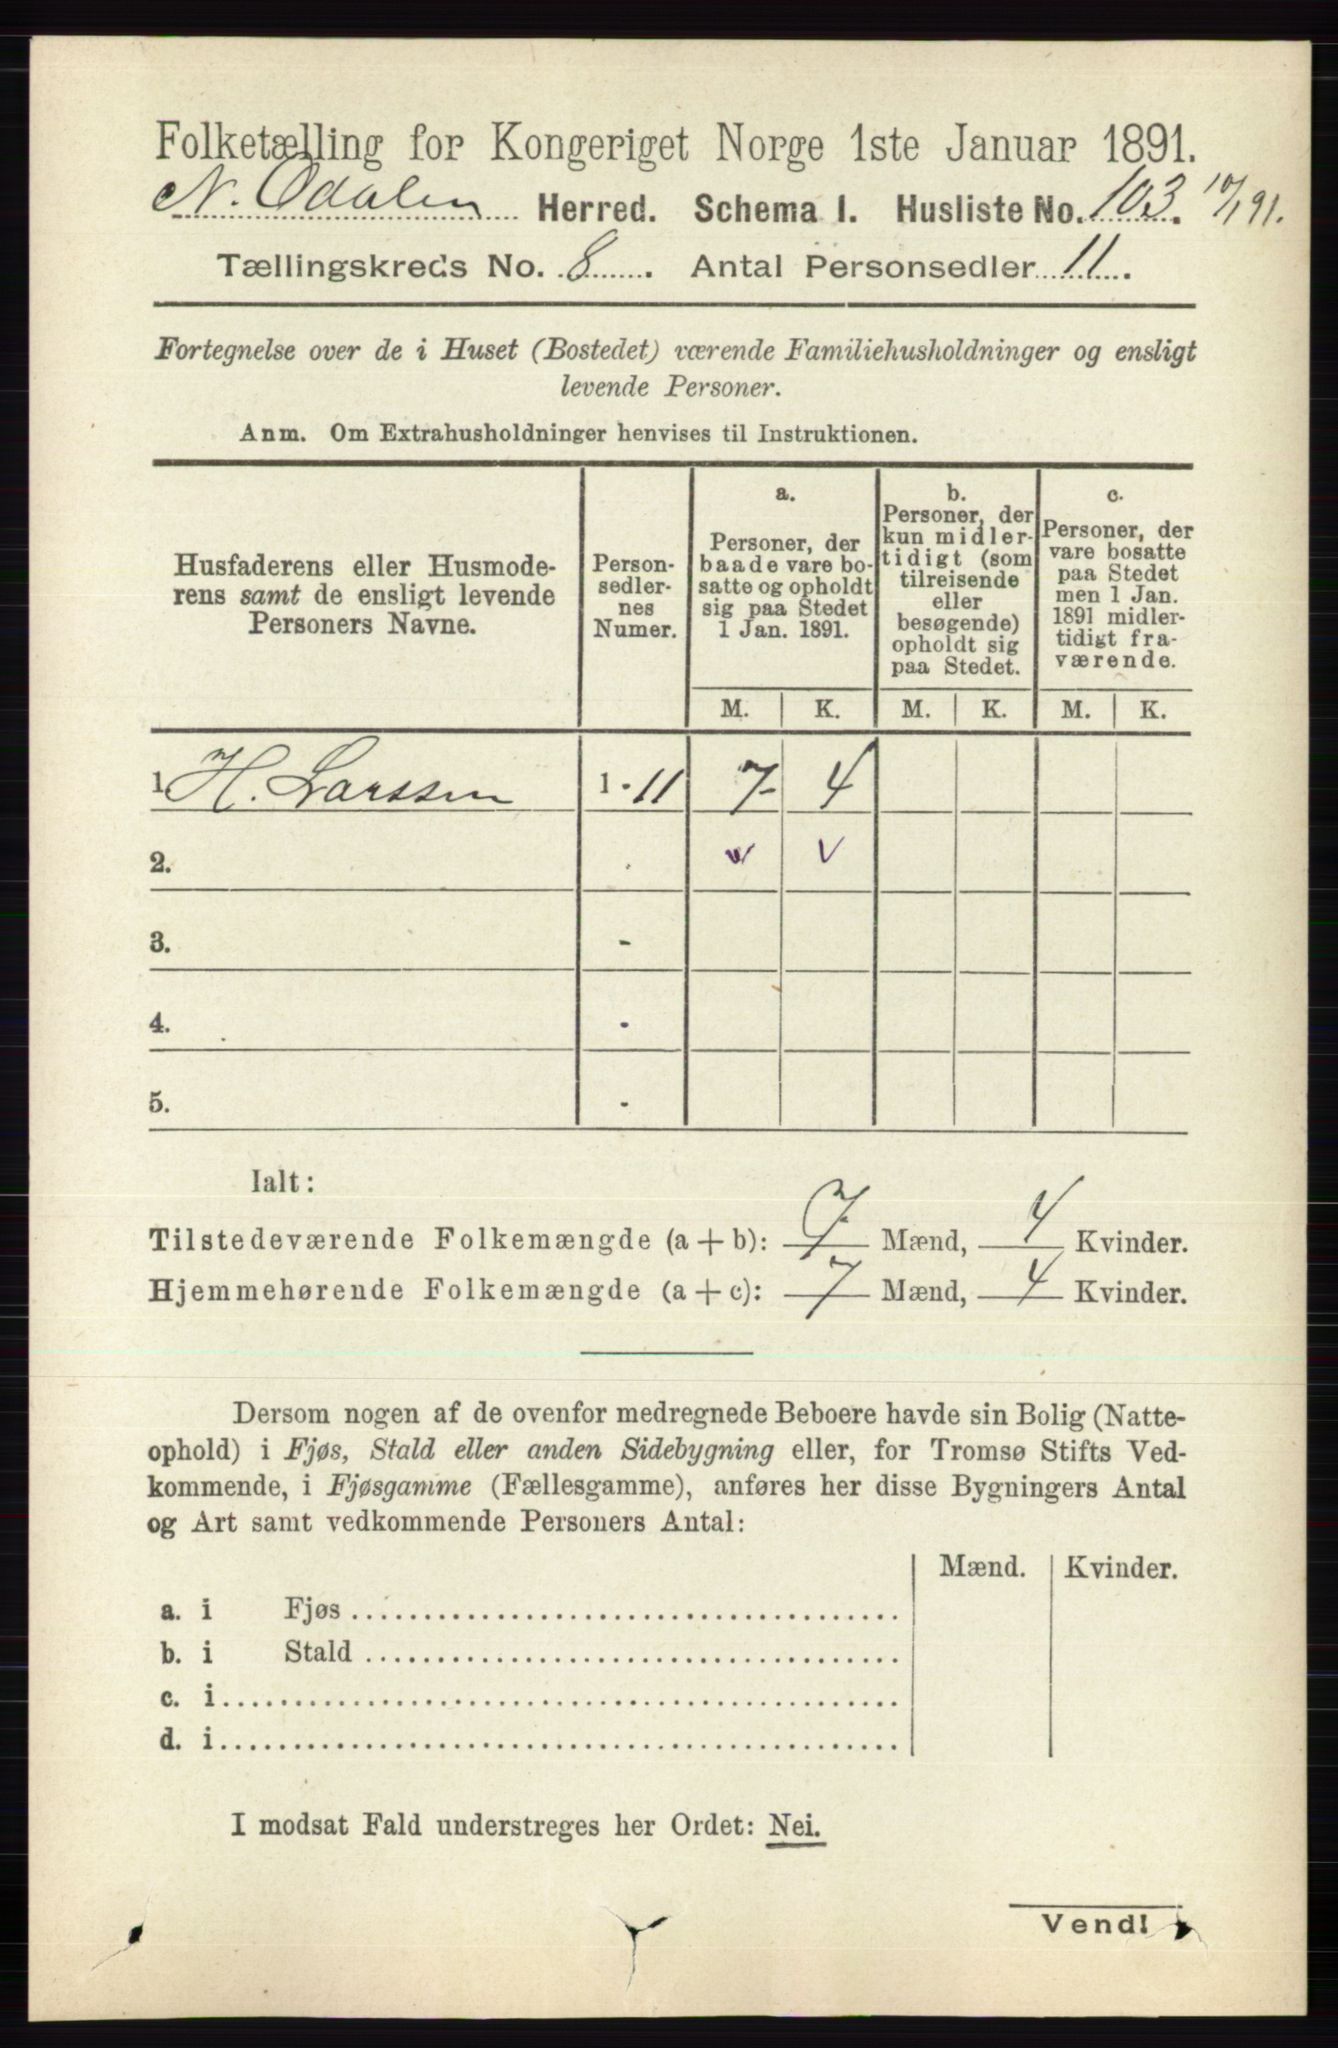 Folketælling for Kongeriget Norge 1ste Januar 1891.
N. Odalen Herred. Schema I. Husliste No. 103. 10/1 91.
Tællingskreds No. 8 . Antal Personsedler 11 .
Fortegnelse over de i Huset (Bostedet) værende Familiehusholdninger og ensligt
levende Personer.
Anm. Om Extrahusholdninger henvises til Instruktionen.
Husfaderens eller Husmode-
rens samt de ensligt levende
Personers Navne.
Person-
sedler-
nes
Numer.
a.
Personer, der
baade vare bo-
satte og opholdt
sig paa Stedet
1 Jan. 1891.
b.
Personer, der
kun midler-
tidigt (som
tilreisende
eller
besøgende)
opholdt sig
paa Stedet.
c.
Personer, der
vare bosatte
paa Stedet
men 1 Jan.
1891 midler-
tidigt fra-
værende.
M. K. M. K. M. K.
1. H. Larssen 1 - 11 7 4
2.
3. -
4. -
5. -
Ialt:
Tilstedeværende Folkemængde (a + b): 7 Mænd, 4 Kvinder.
Hjemmehørende Folkemængde (a + c): 7 Mænd, 4 Kvinder.
Dersom nogen af de ovenfor medregnede Beboere havde sin Bolig (Natte-
ophold) i Fjøs, Stald eller anden Sidebygning eller, for Tromsø Stifts Ved-
kommende, i Fjøsgamme (Fællesgamme), anføres her disse Bygningers Antal
og Art samt vedkommende Personers Antal:
Mænd. Kvinder.
a. i Fjøs
b. i Stald
c. i
d. i
I modsat Fald understreges her Ordet: Nei.
Vend!